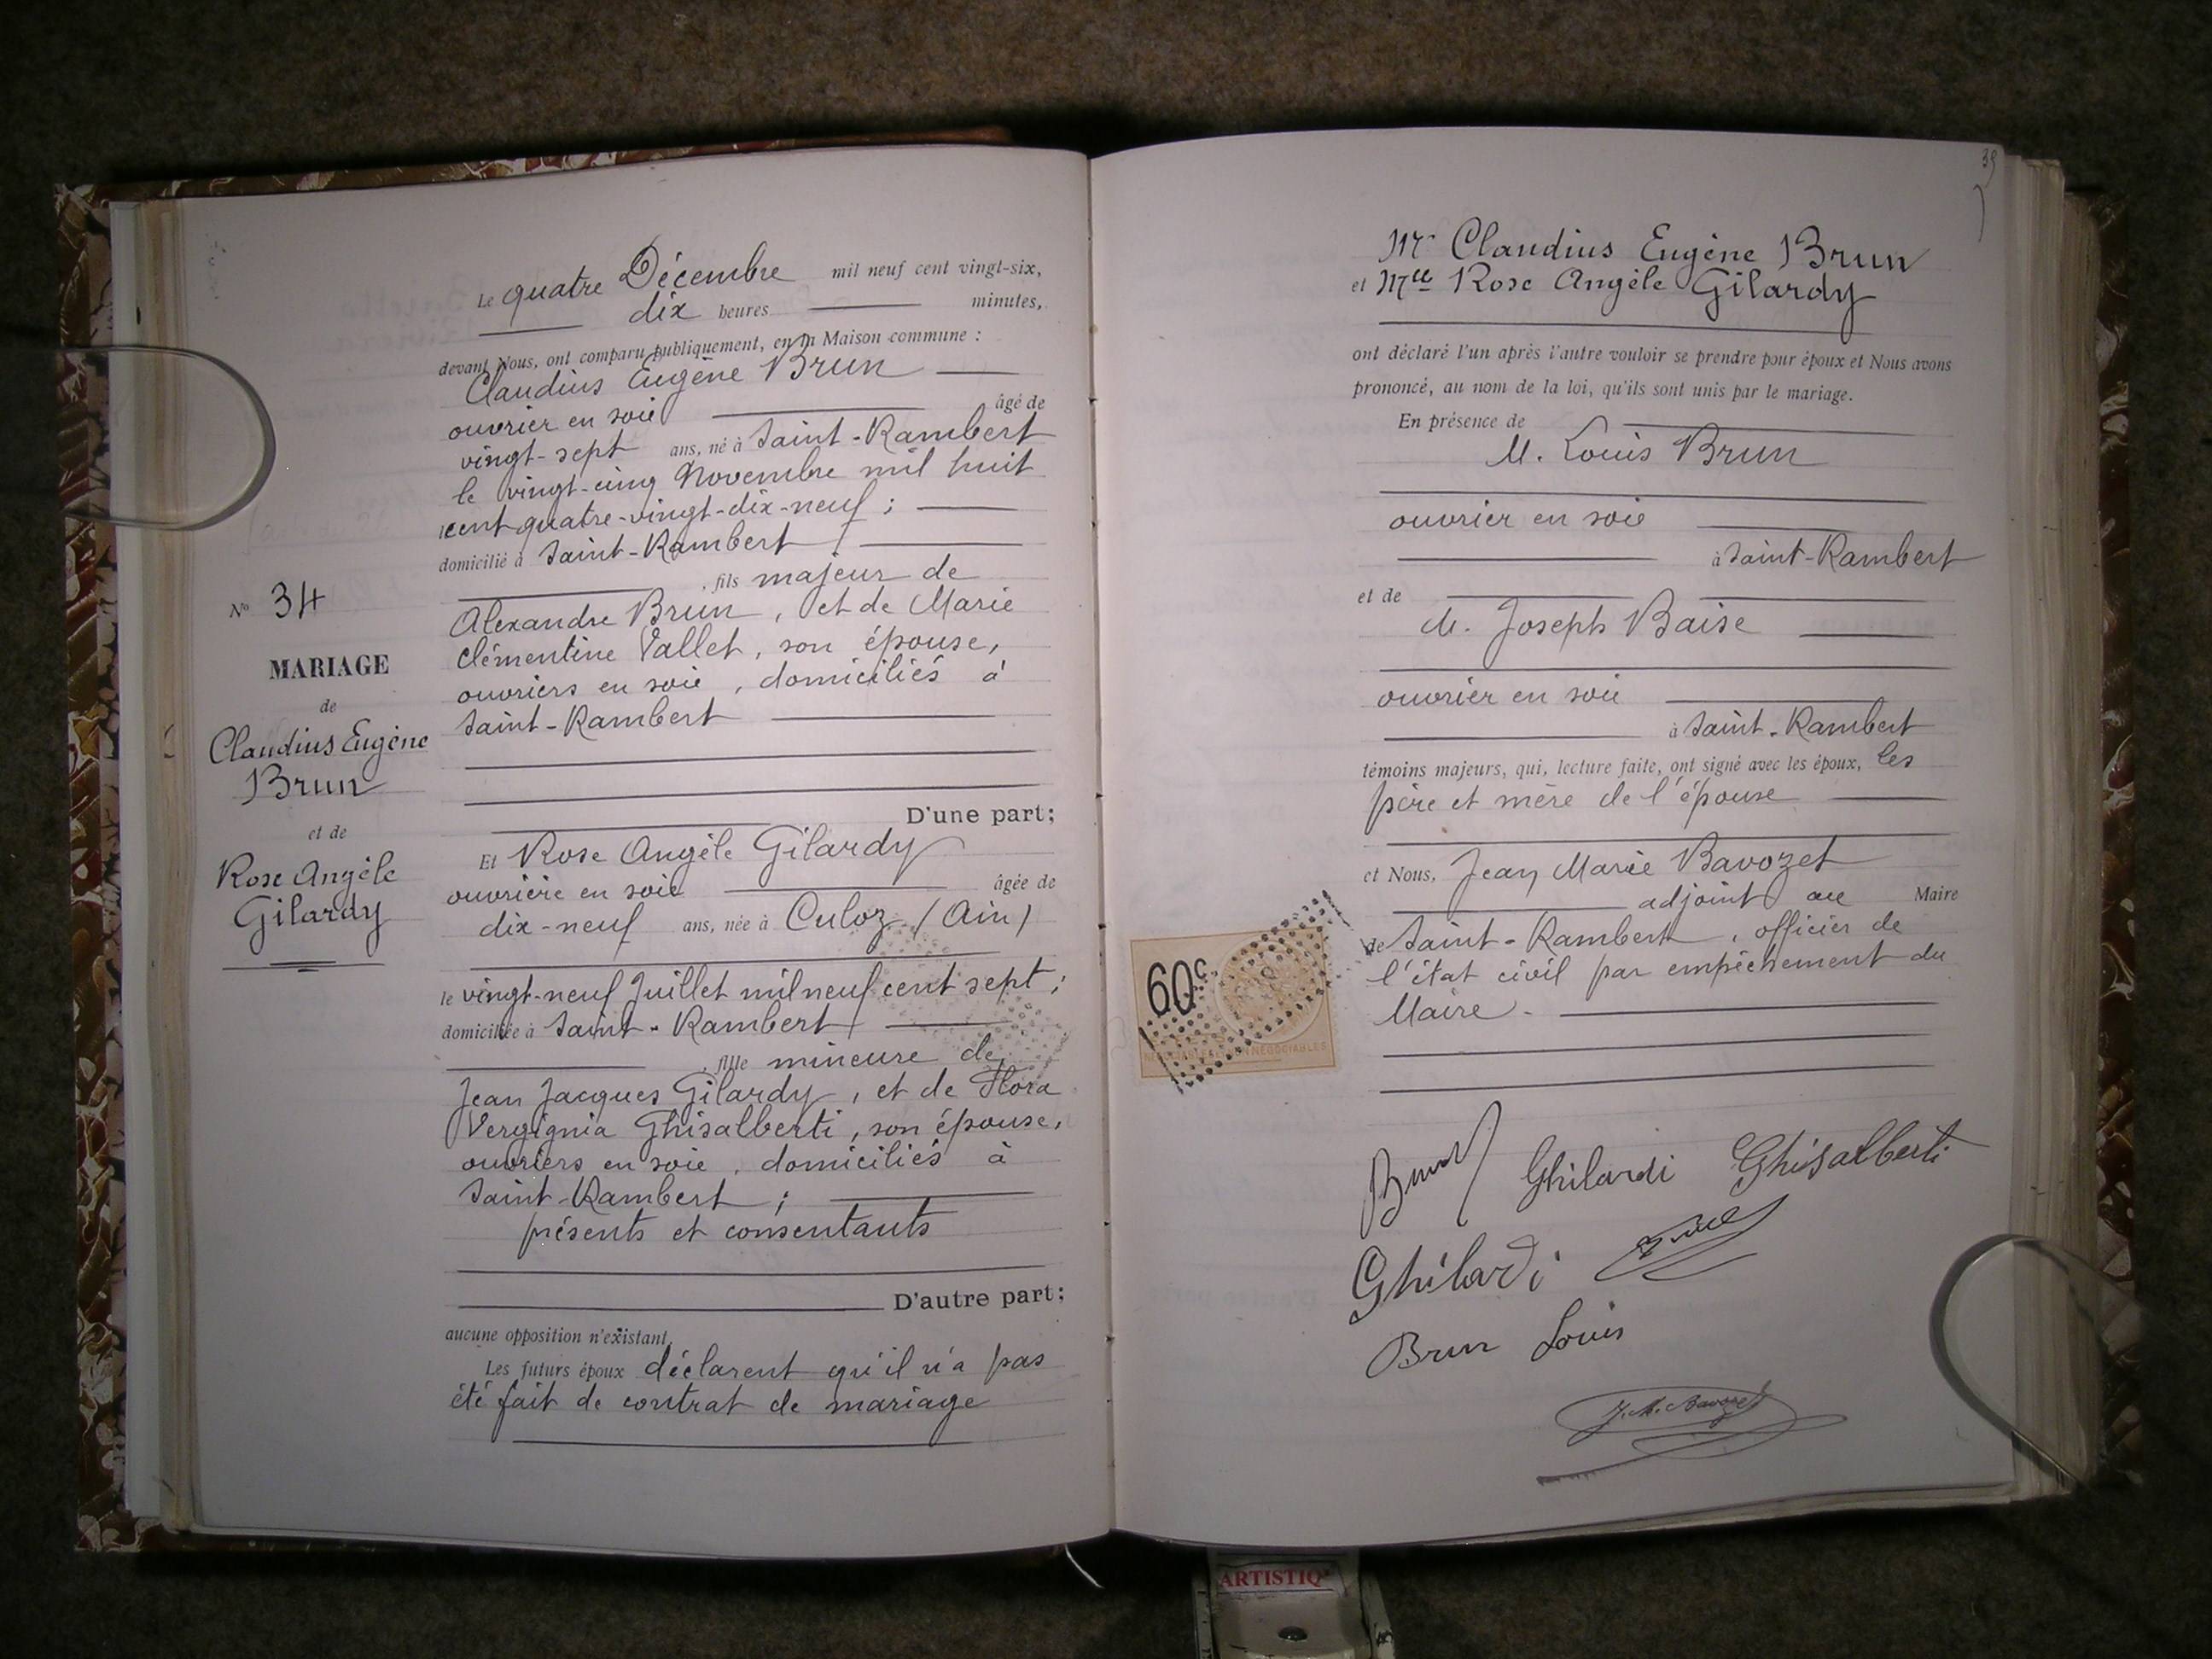 Le quatre Décembre mil neuf cent vingt-six,
dix heures minutes,
devant Nous, ont comparu publiquement, en la Maison commune :
Claudius Eugène Brun
ouvrier en soie âgé de
vingt-sept ans, né à Saint-Rambert
le vingt-cinq Novembre mil huit
cent quatre-vingt-dix-neuf ;
domicilié à Saint-Rambert
, fils majeur de
Alexandre Brun, et de Marie
Clémentine Vallet, son épouse,
ouvriers en soie, domiciliés à
Saint-Rambert
D'une part;
Et Rose Angèle Gilardy
ouvrière en soie âgée de
dix-neuf ans, née à Culoz (Ain)
le vingt-neuf Juillet mil neuf cent sept ;
domiciliée à Saint-Rambert
, fille mineure de
Jean Jacques Gilardy, et de Flora
Vergignia Ghisalberti, son épouse,
ouvriers en soie, domiciliés à
Saint-Rambert ;
présents et consentants
D'autre part;
aucune opposition n'existant,
Les futurs époux déclarent qu'il n'a pas
été fait de contrat de mariage
No 34
MARIAGE
de
Claudius Eugène
Brun
et de
Rose Angèle
Gilardy
39
Mr Claudius Eugène Brun
et Mlle Rose Angèle Gilardy
ont déclaré l'un après l'autre vouloir se prendre pour époux et Nous avons
prononcé, au nom de la loi, qu'ils sont unis par le mariage.
En présence de
M. Louis Brun
ouvrier en soie
à Saint-Rambert
et de
M. Joseph Baise
ouvrier en soie
à Saint-Rambert
témoins majeurs, qui, lecture faite, ont signé avec les époux, les
père et mère de l'épouse
et Nous, Jean Marie Bavozet
adjoint au Maire
de Saint-Rambert, officier de
l'état civil par empêchement du
Maire.
60c
NÉGOCIABLES
Brun Ghilardi Ghisalberti
Ghilardi
Brun Louis
J. M. Bavozet
ARTISTIQ